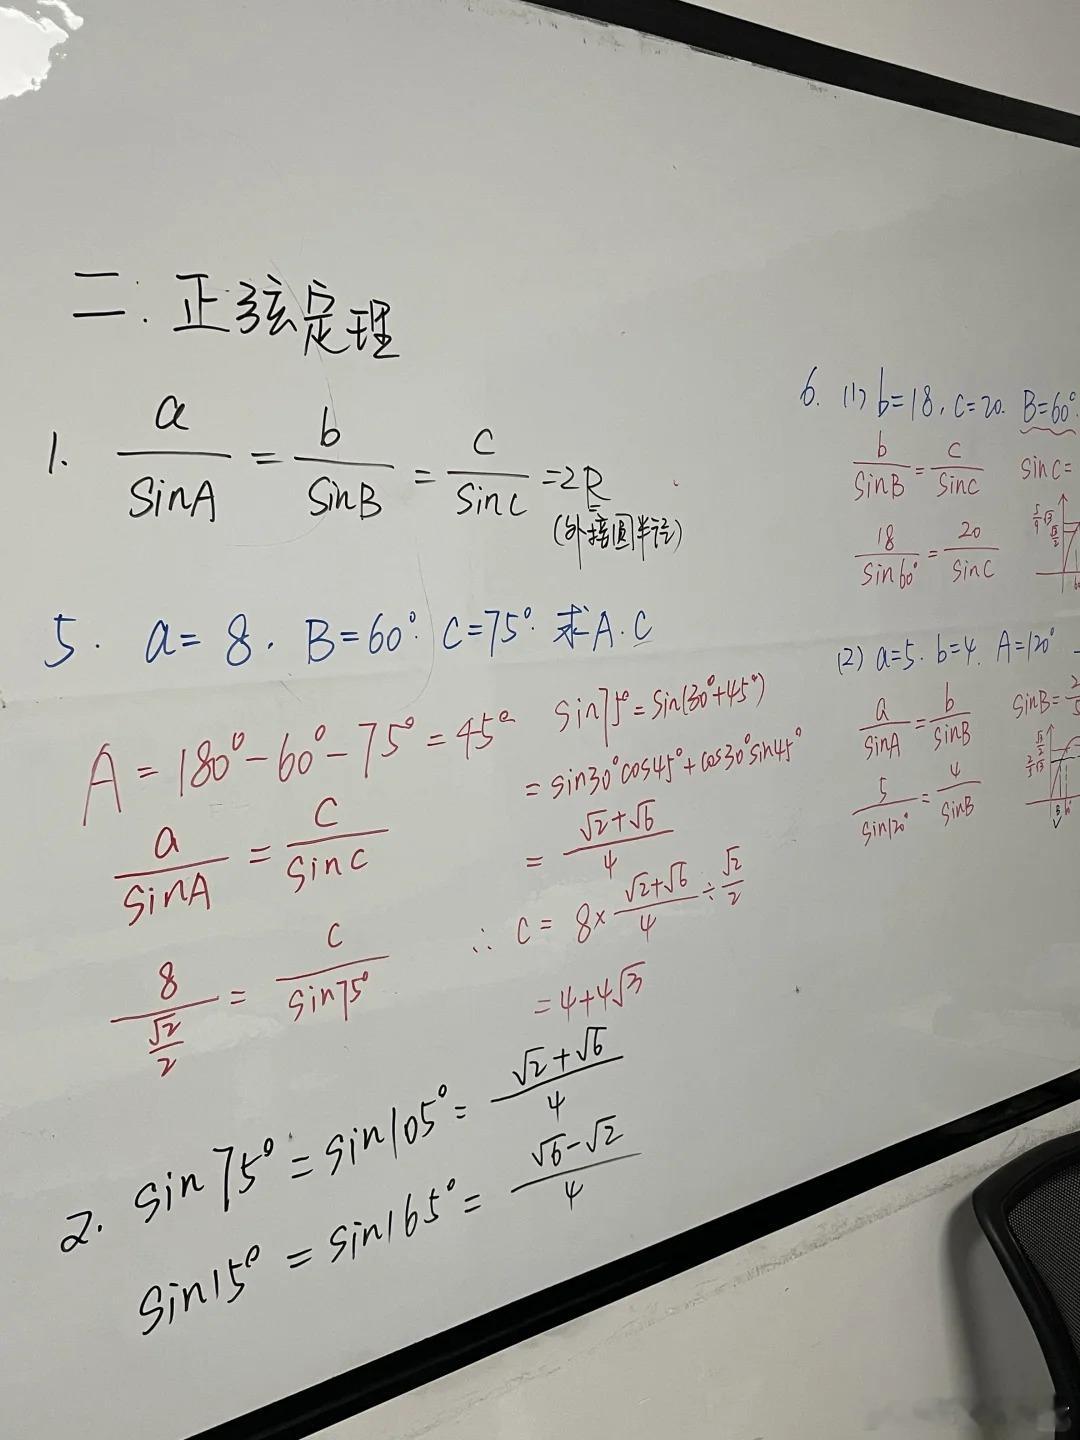 二. 正弦定理
1. a/SinA = b/SinB = c/SinC = 2R
(外接圆半径)
5. a=8. B=60°. C=75°. 求A.C
A=180°-60°-75°=45°
a/SinA = C/SinC
8/(√2/2) = C/Sin75°
Sin75°=Sin(30°+45°)
=Sin30°cos45°+cos30°sin45°
=(√2+√6)/4
∴ C=8×(√2+√6)/4÷√2/2
=4+4√3
2. Sin75°=Sin105°=(√2+√6)/4
Sin15°=Sin165°=(√6-√2)/4
6. (1) b=18, C=20. B=60°.
b/SinB = C/SinC
SinC=
18/Sin60° = 20/SinC
(2) a=5. b=4. A=120°
a/SinA = b/SinB
SinB=
5/Sin120° = 4/SinB